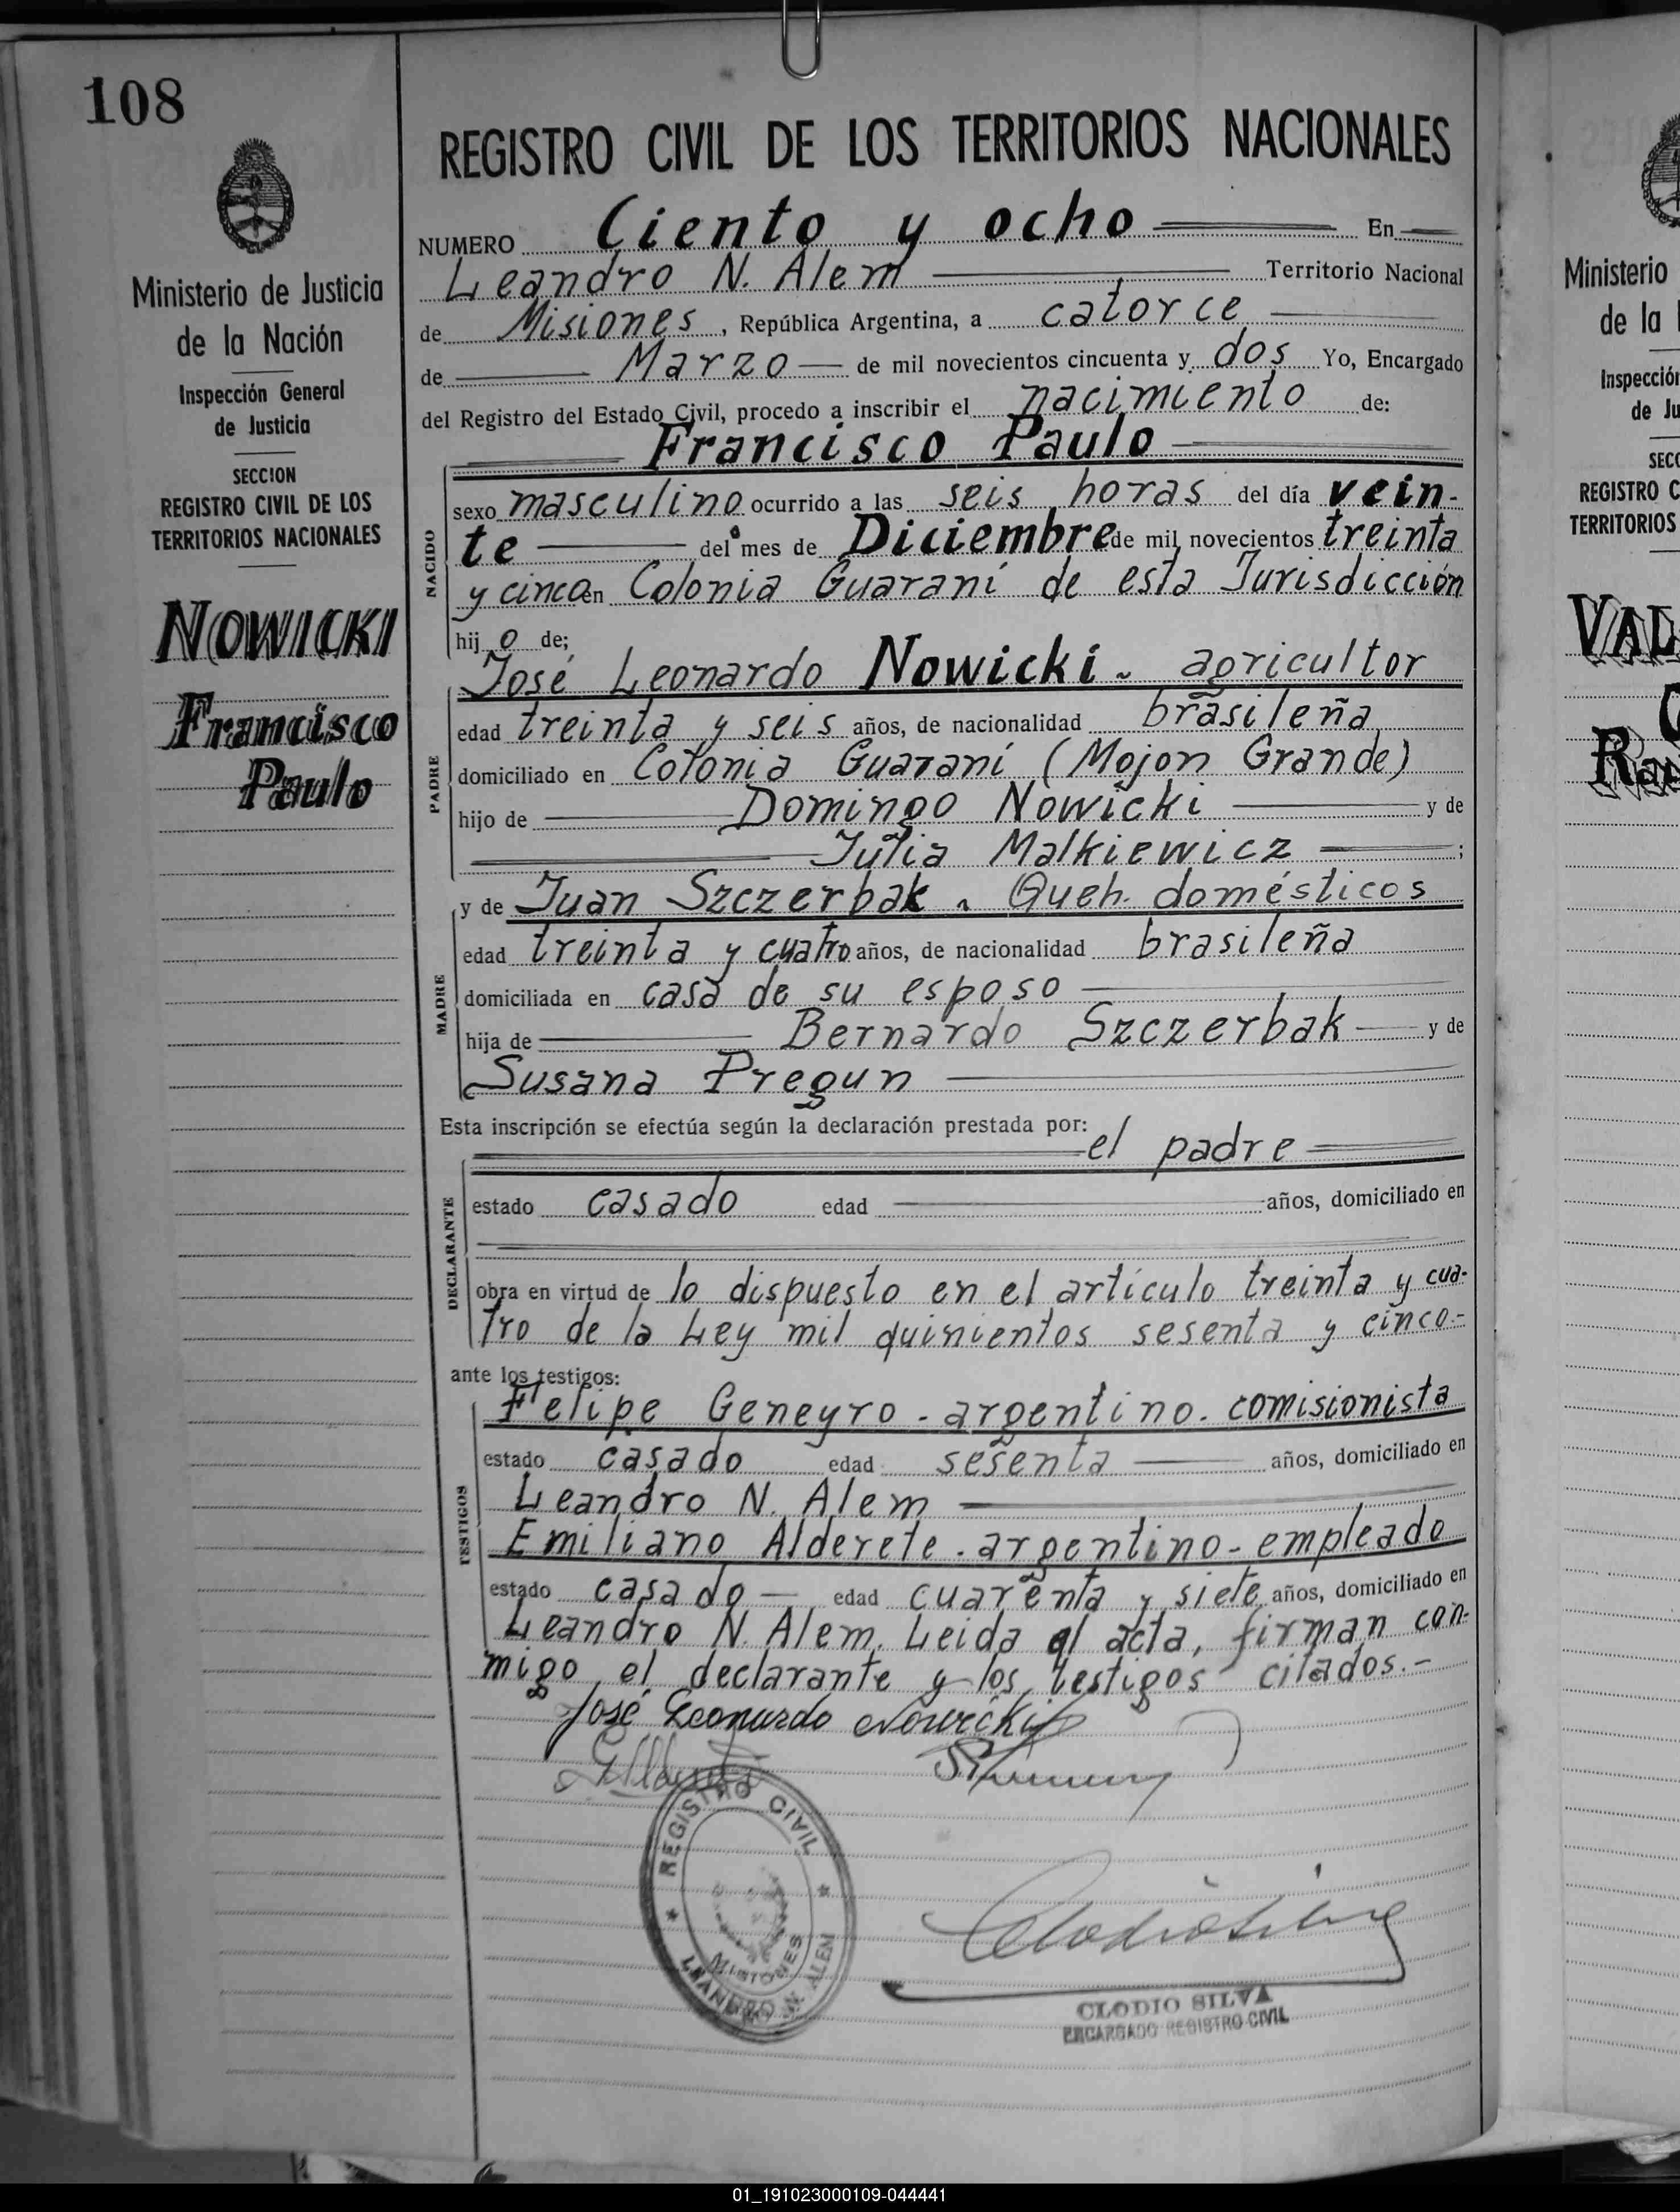 108
Ministerio de Justicia
de la Nación
Inspección General
de Justicia
SECCION
REGISTRO CIVIL DE LOS
TERRITORIOS NACIONALES
NOWICKI
Francisco
Paulo
REGISTRO CIVIL DE LOS TERRITORIOS NACIONALES
NUMERO Ciento y ocho En
Leandro N. Alem Territorio Nacional
de Misiones, República Argentina, a catorce
de Marzo de mil novecientos cincuenta y dos Yo, Encargado
del Registro del Estado Civil, procedo a inscribir el nacimiento de:
Francisco Paulo
NACIDO
sexo masculino ocurrido a las seis horas del día vein-
te del mes de Diciembre de mil novecientos treinta
y cinco en Colonia Guaraní de esta Jurisdicción
hijo de;
José Leonardo Nowicki. agricultor
PADRE
edad treinta y seis años, de nacionalidad brasileña
domiciliado en Colonia Guaraní (Mojon Grande)
hijo de Domingo Nowicki y de
Julia Malkiewicz;
y de Juan Szczerbak. Queh. domésticos
MADRE
edad treinta y cuatro años, de nacionalidad brasileña
domiciliada en casa de su esposo
hija de Bernardo Szczerbak y de
Susana Pregun
Esta inscripción se efectúa según la declaración prestada por:
el padre
DECLARANTE
estado casado edad años, domiciliado en
obra en virtud de lo dispuesto en el artículo treinta y cua-
tro de la Ley mil quinientos sesenta y cinco.-
ante los testigos:
TESTIGOS
Felipe Geneyro - argentino. comisionista
estado casado edad sesenta años, domiciliado en
Leandro N. Alem
Emiliano Alderete. argentino - empleado
estado casado edad cuarenta y siete años, domiciliado en
Leandro N. Alem. Leida el acta, firman con-
migo el declarante y los testigos citados.-
José Leonardo Nowicki
REGISTRO CIVIL
MISIONES
LEANDRO N. ALEM
CLODIO SILVA
ENCARGADO REGISTRO CIVIL
Ministerio
de la
Inspección
de Ju
SECC
REGISTRO C
TERRITORIOS
VAL
01_191023000109-044441